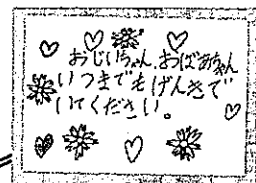 おじいちゃん、おばあちゃん
いつまでもげんきで
いてください。